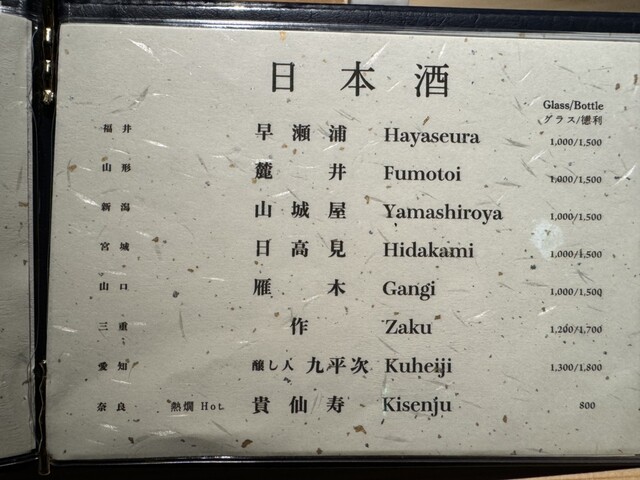 日本酒
Glass/Bottle
グラス/徳利
福井 早瀬浦 Hayaseura 1,000/1,500
山形 麓井 Fumotoi 1,000/1,500
新潟 山城屋 Yamashiroya 1,000/1,500
宮城 日高見 Hidakami 1,000/1,500
山口 雁木 Gangi 1,000/1,500
三重 作 Zaku 1,200/1,700
愛知 醸し人 九平次 Kuheiji 1,300/1,800
奈良 熱燗 Hot 貴仙寿 Kisenju 800